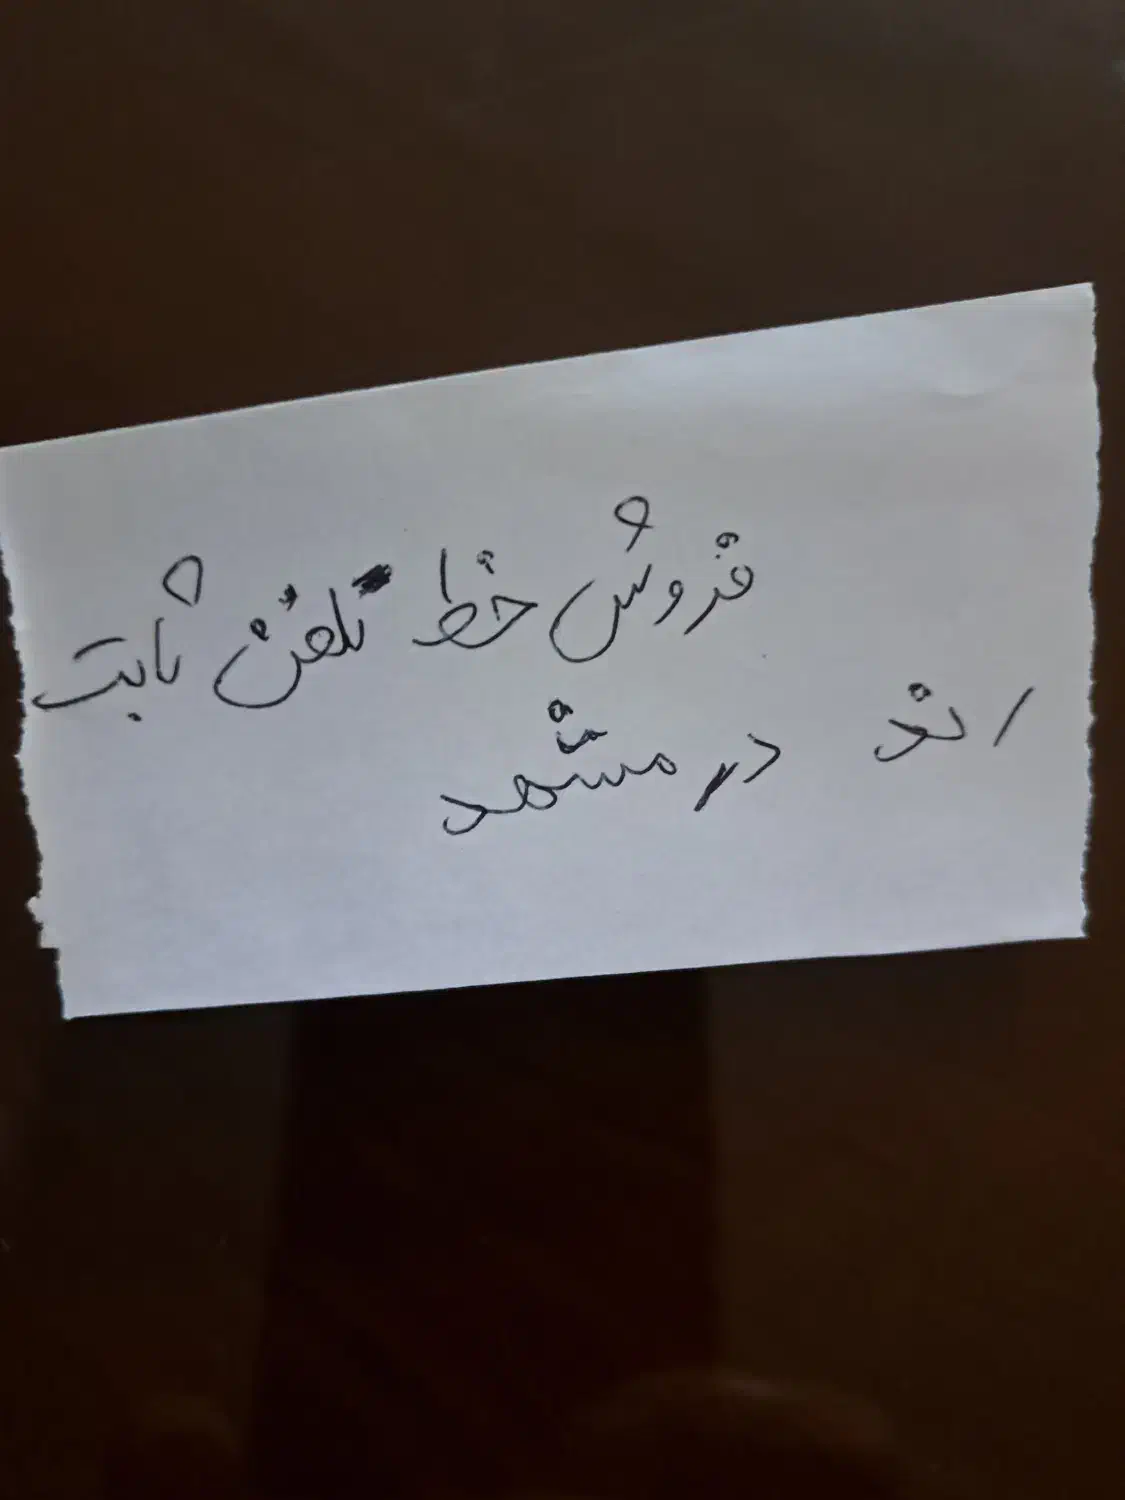 فروش خط تلفن ثابت
رند در مشهد